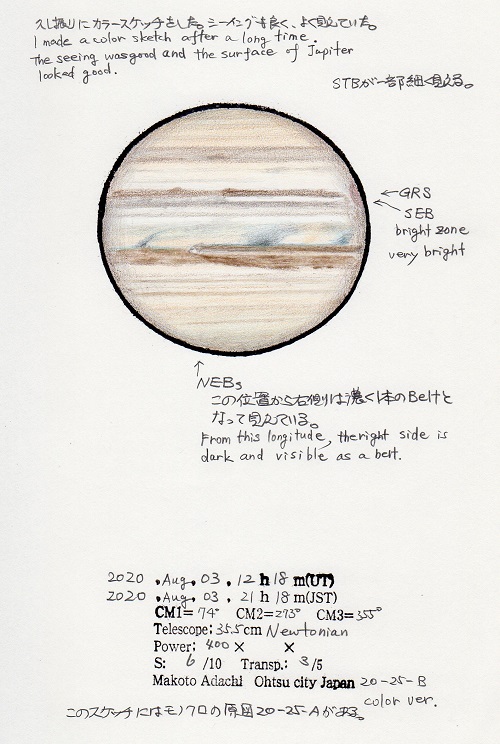 久し振りにカラースケッチをした。シーイングも良く、よく見えていた。
I made a color sketch after a long time.
The seeing was good and the surface of Jupiter
looked good.
STBが一部細く見える。
←GRS
SEB
bright zone
very bright
↑
NEBs
この位置から右側は濃く1本のBeltと
なって見えている。
From this longitude, the right side is
dark and visible as a belt.
2020 . Aug. 03 . 12 h 18 m(UT)
2020 . Aug. 03 . 21 h 18 m(JST)
CM1= 74° CM2=273° CM3=355°
Telescope: 35.5cm Newtonian
Power: 400 × ×
S: 6 /10 Transp.: 3/5
Makoto Adachi Ohtsu city Japan 20-25-B
color ver.
このスケッチにはモノクロの原図20-25-Aがある。